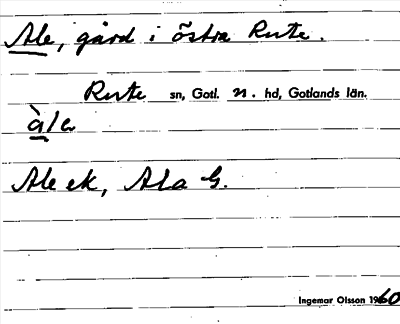 Ale, gård i östra Rute.
Rute sn, Gotl. n. hd, Gotlands län.
àla
Ale ek, Ala G.
Ingemar Olsson 1960